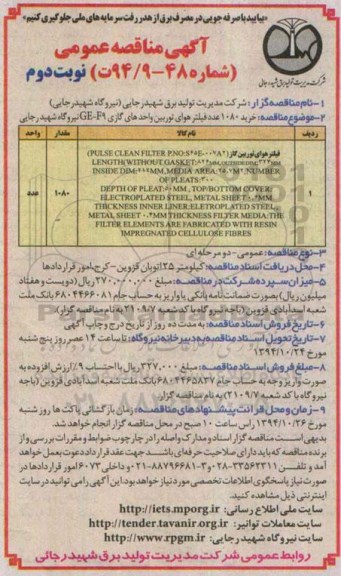 «بیایید با صرفه جویی در مصرف برق از هدر رفت سرمایه های ملی جلوگیری کنیم»
آگهی مناقصه عمومی
(شماره ۴۸-۹۴/۹ت) نوبت دوم
شرکت مدیریت تولید برق شهید رجایی
۱-نام مناقصه گزار: شرکت مدیریت تولید برق شهید رجایی (نیروگاه شهید رجایی)
۲-موضوع مناقصه: خرید ۱۰۸۰ عدد فیلتر هوای توربین واحد های گازی GE-F9 نیروگاه شهید رجایی
ردیف نام کالا مقدار واحد
۱ ۱۰۸۰ عدد
فیلتر هوای توربین گاز
(PULSE CLEAN FILTER P.NO:
LENGTH(WITHOUT GASKET:
INSIDE DIM: MEDIA AREA: NUMBER
OF PLEATS:
DEPTH OF PLEAT: MM , TOP/BOTTOM COVER:
ELECTROPLATED STEEL, METAL SHEET
THICKNESS INNER LINER:ELETROPLATED STEEL,
METAL SHEET THICKNESS FILTER MEDIA:THE
FILTER ELEMENTS ARE FABRICATED WITH RESIN
IMPREGNATED CELLULOSE FIBRES
۳-نوع مناقصه: عمومی-دو مرحله ای
۴-محل دریافت اسناد مناقصه: کیلومتر ۲۵ اتوبان قزوین-کرج-امور قراردادها
۵-میزان سپرده شرکت در مناقصه: مبلغ ۲۷۰,۰۰۰,۰۰۰ ریال (دویست و هفتاد
میلیون ریال) بصورت ضمانت نامه بانکی یا واریز به حساب جام ۶۸۰۴۴۶۶۰۸۱ بانک ملت
شعبه اسدآبادی قزوین (باجه نیروگاه با کد شعبه ۲۱۰۹/۷ به نام مناقصه گزار)
۶-تاریخ فروش اسناد مناقصه: به مدت ده روز از تاریخ درج و چاپ آگهی
۷-تاریخ تحویل اسناد مناقصه به دبیرخانه نیروگاه: تا ساعت ۱۴ عصر روز پنج شنبه
مورخ ۱۳۹۴/۱۰/۲۴
۸-مبلغ فروش اسناد مناقصه: مبلغ ۳۲۷,۰۰۰ ریال با احتساب ۹٪ ارزش افزوده به
صورت واریز وجه به حساب جام ۶۸۰۴۴۶۵۸۳۷ بانک ملت شعبه اسدآبادی قزوین (باجه
نیروگاه با کد شعبه ۲۱۰۹/۷) به نام مناقصه گزار
۹-زمان و محل قرائت پیشنهادهای مناقصه: زمان بازگشائی پاکت ها روز شنبه
مورخ ۱۳۹۴/۱۰/۲۶ راس ساعت ۱۰ صبح در محل مناقصه گزار انجام خواهد شد.
بدیهی است مناقصه گزار اسناد و مدارک واصله را در چارچوب ضوابط و مقررات بررسی و از
برنده مناقصه که باید دارای صلاحیت حرفه ای باشند جهت عقد قرارداد دعوت بعمل خواهد
آمد و تلفن ۳۳۵۶۲۳۱۱-۰۲۸ و ۳-۸۸۷۹۶۶۸۱-۰۲۱ و داخلی ۶۰۷۳ امور قراردادها در
صورت نیاز پاسخگوی اطلاعات تخصصی مورد نیاز خواهد بود، این آگهی را می توانید در سایت
اینترنتی ذیل مشاهده کنید.
سایت ملی اطلاع رسانی: http://iets.mporg.ir
سایت معاملات توانیر: http://tender.tavanir.org.ir
سایت نیروگاه شهید رجایی: http://www.rpgm.ir
روابط عمومی شرکت مدیریت تولید برق شهید رجائی